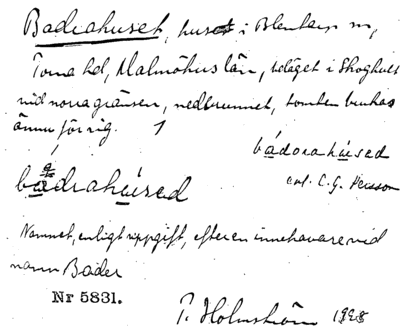 Badrahuset, huset i Blentarp sn,
Torna hd, Malmöhus län, beläget i Skoghult
vid norra gränsen, nedbrunnet, tomten brukas
ännu för sig. 1
bådorahúsed
enl. C. G. Persson
bådrahúsed
Namnet, enligt uppgift, efter en innehavare vid
namn Bader
Nr 5831.
T. Holmström 1928